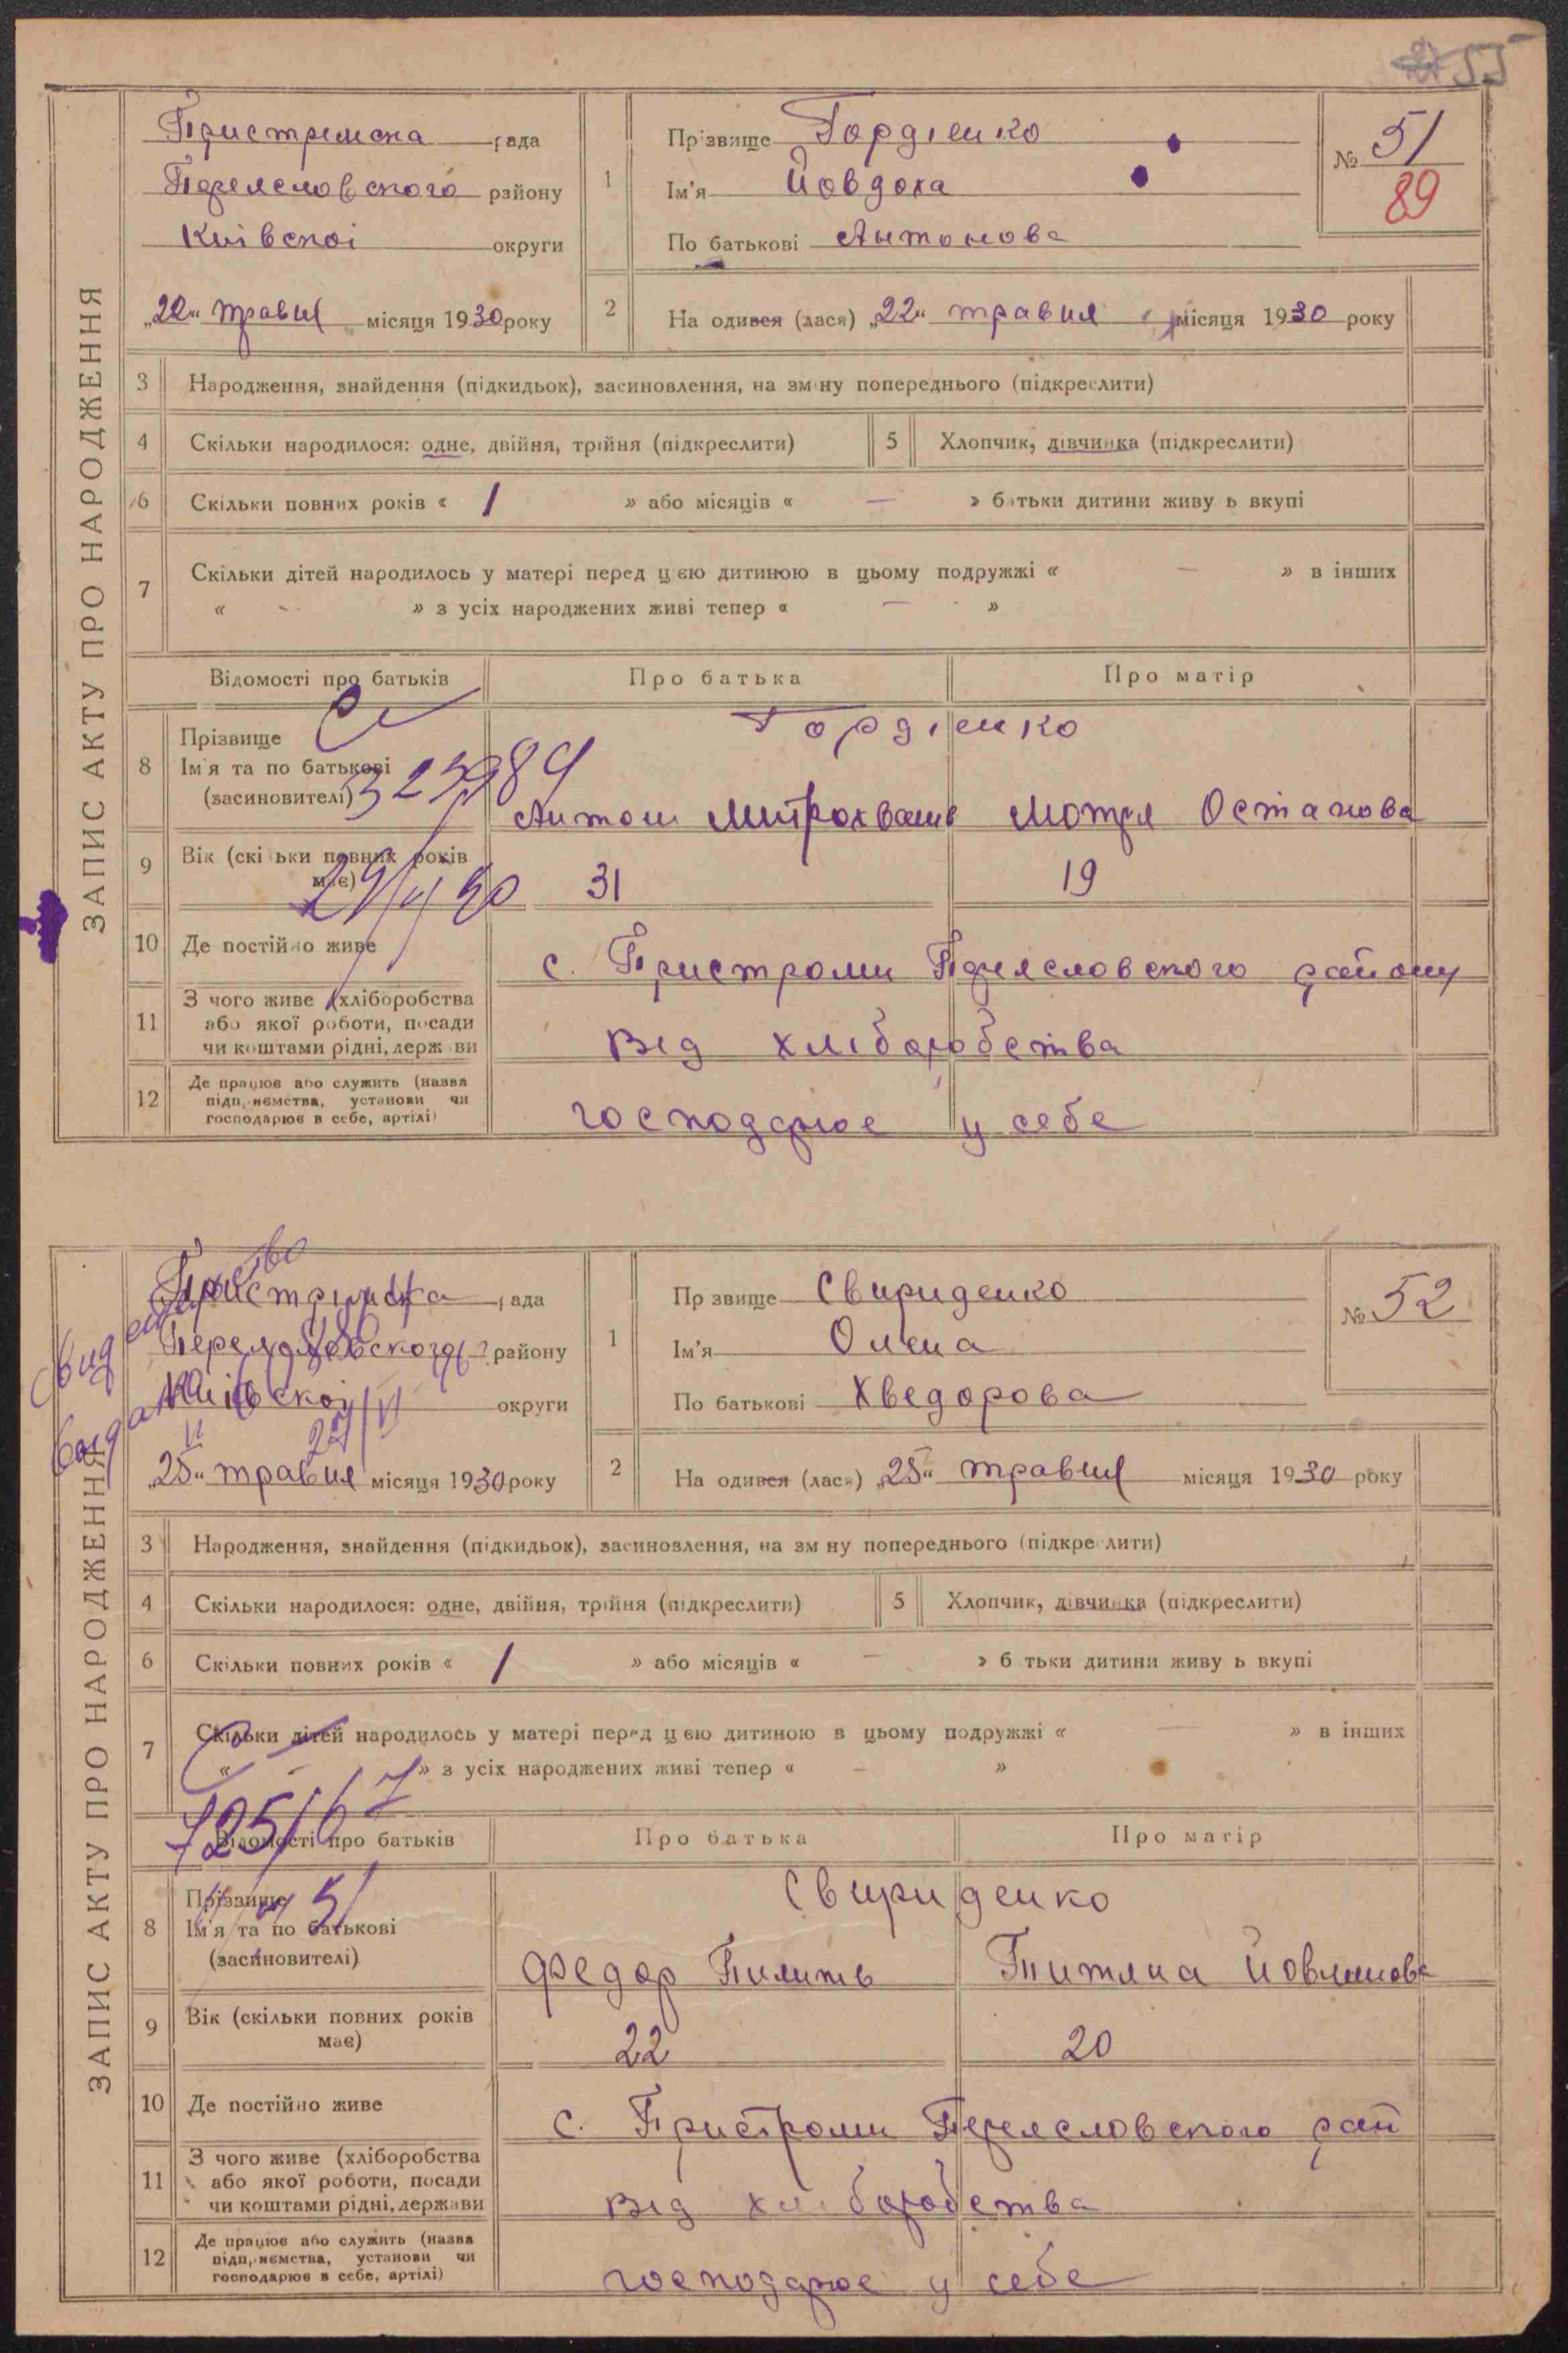 55
ЗАПИС АКТУ ПРО НАРОДЖЕННЯ
Пристремска рада
Переяславского району
Київскої округи
„22“ травня місяця 1930 року
1 Прізвище Гордіенко
Ім'я Йовдоха
По батькові Антонова
№ 51
89
2 На одився (лася) „22“ травня місяця 1930 року
3 Народження, знайдення (підкидьок), засиновлення, на зміну попереднього (підкреслити)
4 Скільки народилося: одне, двійня, трійня (підкреслити)
5 Хлопчик, дівчинка (підкреслити)
6 Скільки повних років « 1 » або місяців « — » батьки дитини живу ь вкупі
7 Скільки дітей народилось у матері перед цією дитиною в цьому подружжі « — » в інших
« - » з усіх народжених живі тепер « — »
Відомості про батьків Про батька Про матір
8 Прізвище
Ім'я та по батькові
(засиновителі)
Гордіенко
Антон Митрохванів Мотря Остапова
9 Вік (скі ьки повних років має) 31 19
10 Де постійно живе с. Пристроми Переяславского району
11 З чого живе (хліборобства
або якої роботи, посади
чи коштами рідні, держ ви
від хліборобства
12 Де працює або служить (назва
підприємства, установи чи
господарює в себе, артілі)
господарює у себе
ЗАПИС АКТУ ПРО НАРОДЖЕННЯ
Пристремска рада
району
Київскої округи
„25“ травня місяця 1930 року
1 Пр звище Свириденко
Ім'я Олена
По батькові Хведорова
№ 52
2 На одився (лася) „25“ травня місяця 1930 року
3 Народження, знайдення (підкидьок), засиновлення, на зм ну попереднього (підкре лити)
4 Скільки народилося: одне, двійня, трійня (підкреслити)
5 Хлопчик, дівчинка (підкреслити)
6 Скільки повних років « 1 » або місяців « — » б тьки дитини живу ь вкупі
7 Скільки дітей народилось у матері перед цією дитиною в цьому подружжі « — » в інших
« - » з усіх народжених живі тепер « — »
Відомості про батьків Про батька Про матір
8 Прізвище
Ім'я та по батькові
(засиновителі)
Свириденко
Федор Пилипів Титяна
9 Вік (скільки повних років має) 22 20
10 Де постійно живе с. Пристроми Переяславского рай
11 З чого живе (хліборобства
або якої роботи, посади
чи коштами рідні, держави
від хліборобства
12 Де працює або служить (назва
підприємства, установи чи
господарює в себе, артілі)
господарює у себе